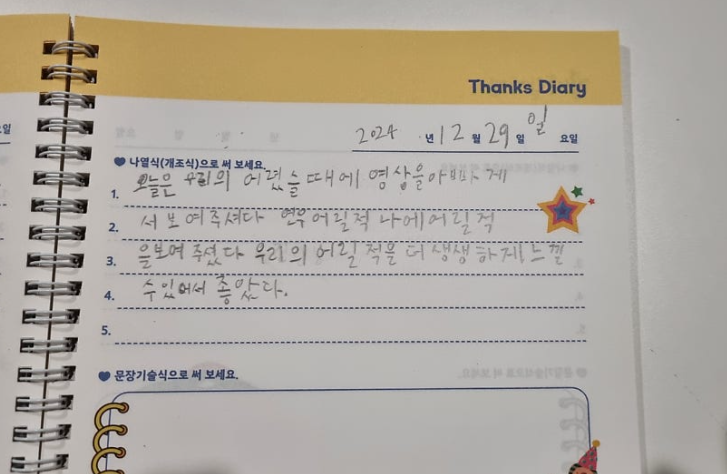 Thanks Diary
2024 년 12 월 29 일 일 요일
나열식(개조식)으로 써 보세요.
1. 오늘은 우리의 어렸을때에 영상을아빠께
2. 서 보여주셔다 연우어릴적 나에어릴적
3. 을보여주셨다 우리의 어릴적을 더 생생하게느낄
4. 수있어서 좋았다.
5.
문장기술식으로 써 보세요.